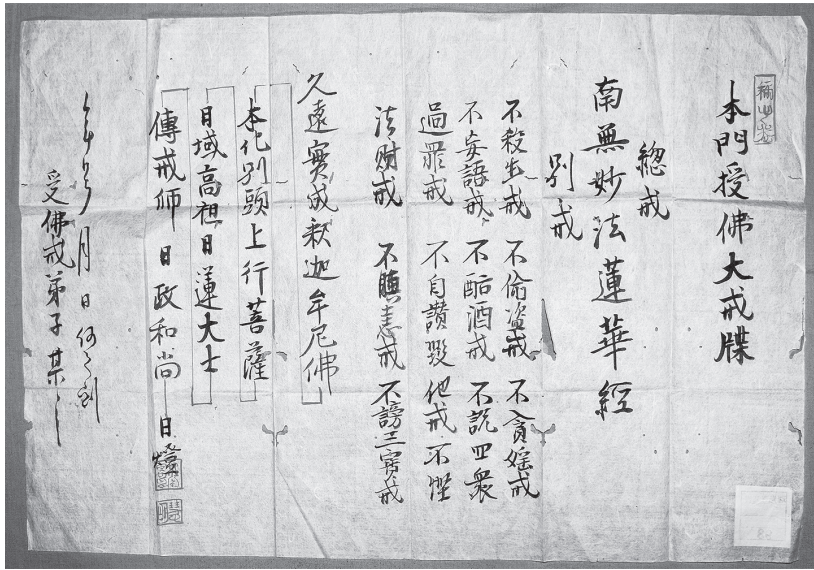 本門授佛大戒牒
總戒
南無妙法蓮華經
別戒
不殺生戒 不偷盜戒 不貪婬戒
不妄語戒 不酤酒戒 不說四衆
過罪戒 不自讚毀他戒 不慳
法財戒 不瞋恚戒 不謗三寶戒
久遠實成釈迦牟尼佛
本化別頭上行菩薩
日域高祖日蓮大士
傳戒師 日政和尚 日燈
月 日
受佛戒弟子 某